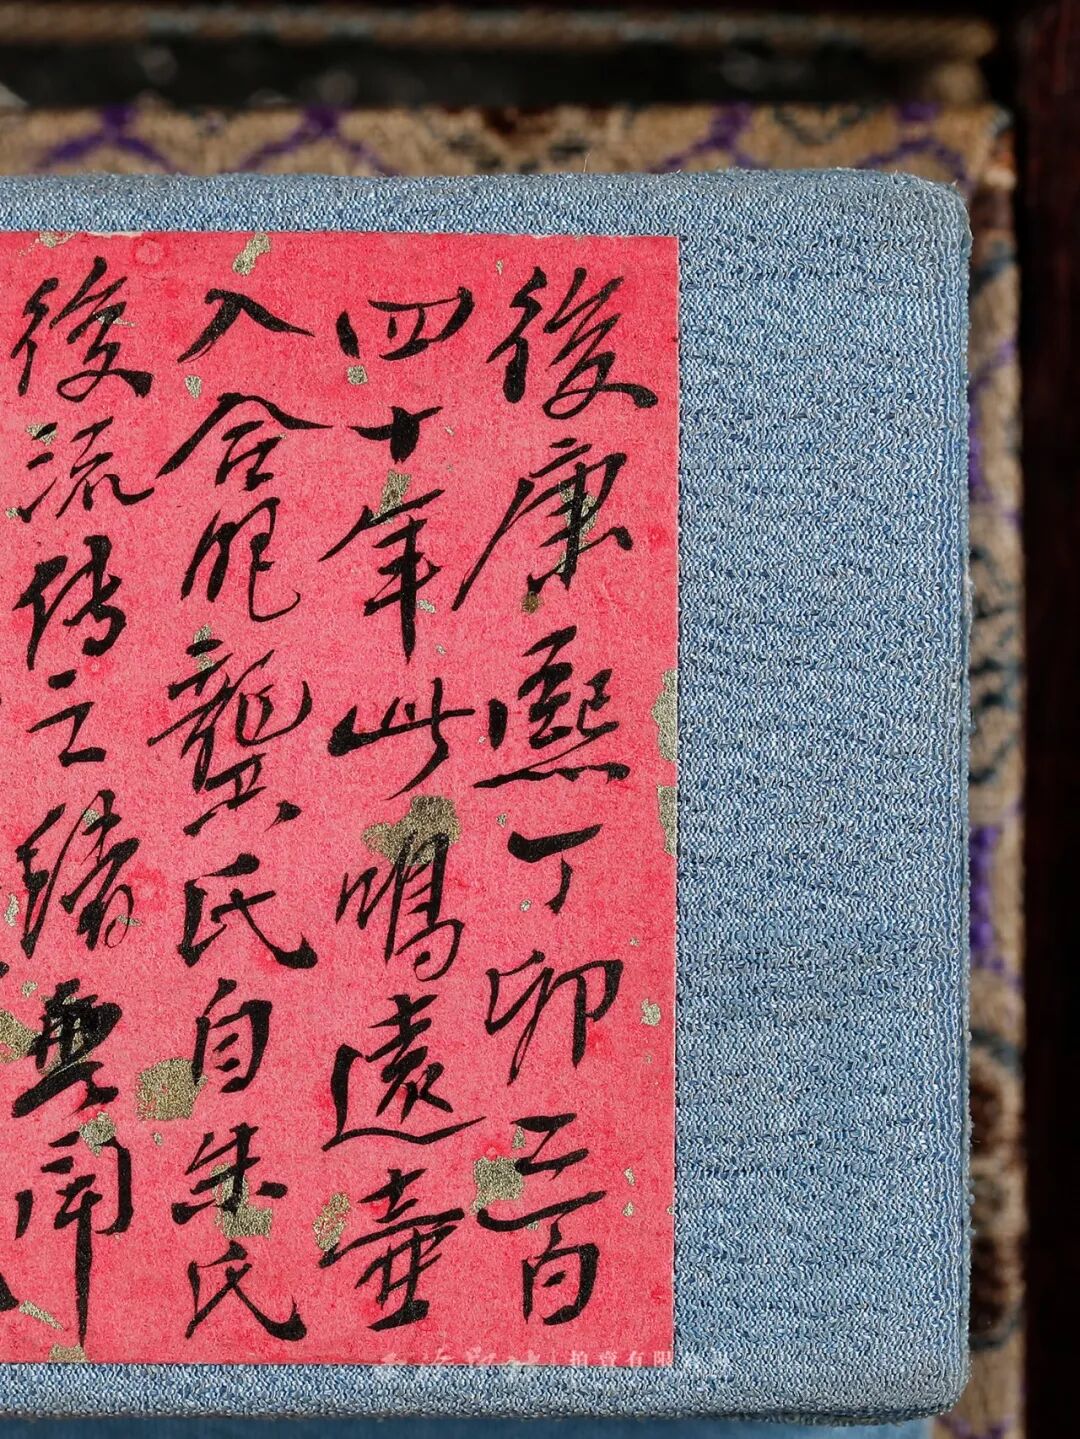 後康熙丁卯三百
四十年此鳴遠壺
入合肥龔氏自朱氏
後流傳之績無聞
西泠印社拍賣有限公司